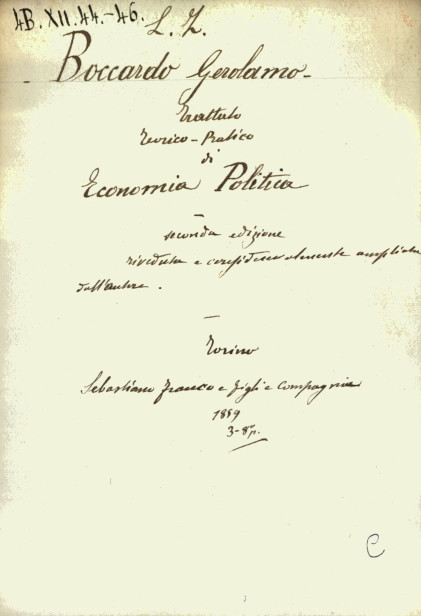 4B. XII. 44.-46. L. Z.
Boccardo Gerolamo -
Trattato
Teorico-Pratico
di
Economia Politica
seconda edizione
riveduta e considerevolmente ampliata
dall'autore.
Torino
Sebastiano Franco e Figli e Compagnia
1859
3-8º.
C